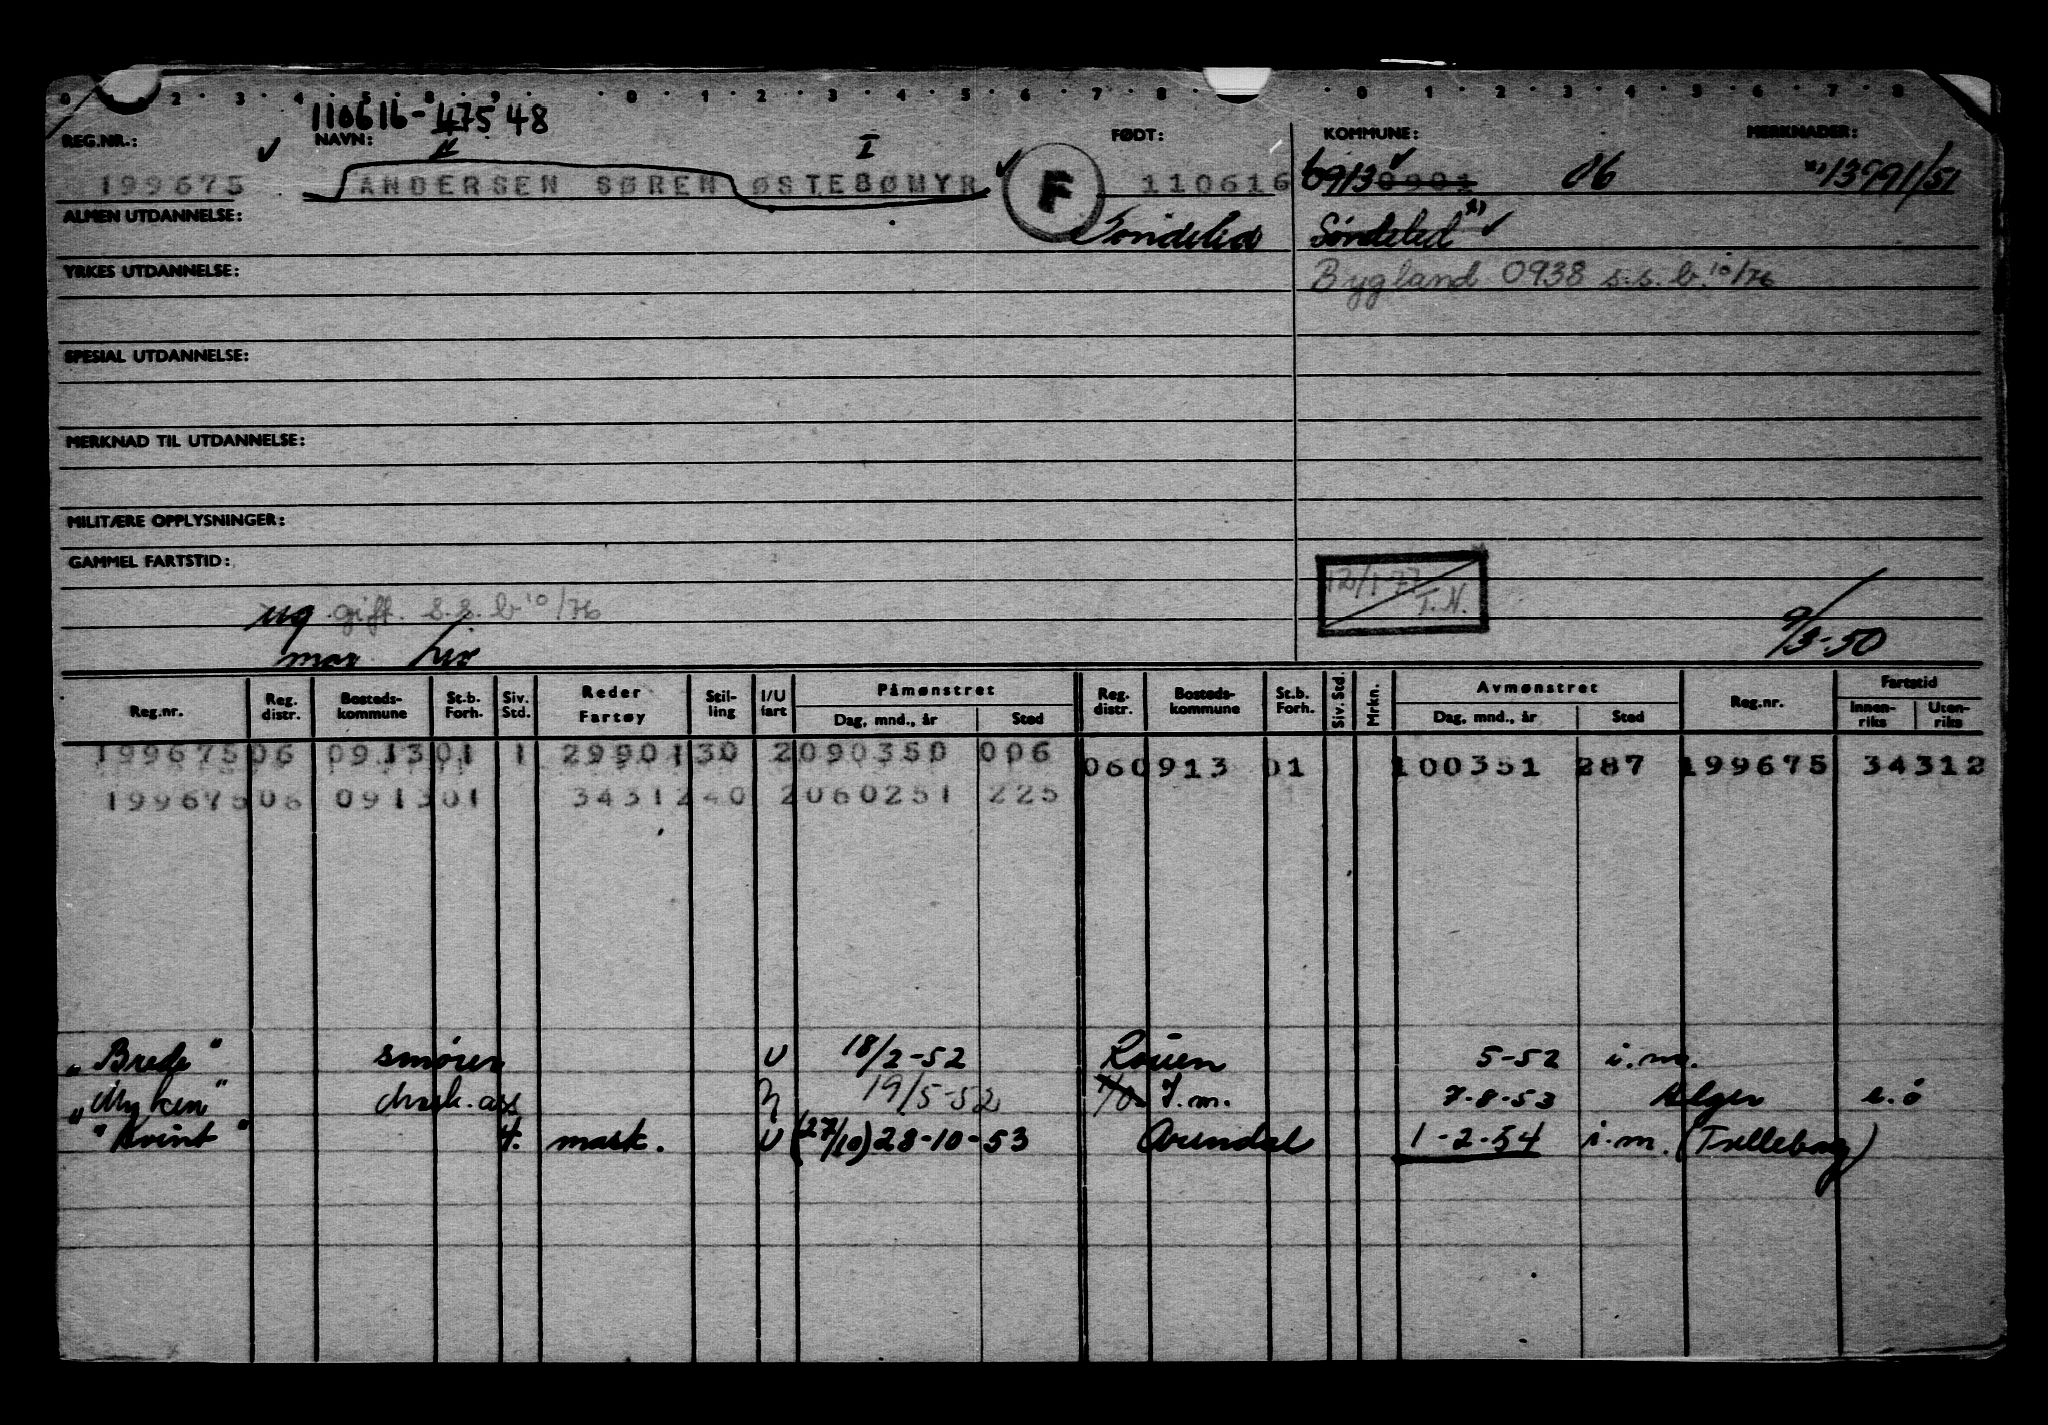 0 2 3 4 5 8 9 0 1 2 3 4 5 6 7 8 0 1 2 3 4 5 6 7 8
110616-47548
REG.NR.: NAVN: FØDT: KOMMUNE: MERKNADER:
I
199675 ANDERSEN SØREN ØSTEBØMYR F 110616 0913 0901 06 *) 13991/51
ALMEN UTDANNELSE: Søndeled Søndeled *)
YRKES UTDANNELSE: Bygland 0938 s.s.b. 10/76
SPESIAL UTDANNELSE:
MERKNAD TIL UTDANNELSE:
MILITÆRE OPPLYSNINGER:
GAMMEL FARTSTID:
12/1-77 T.N.
ug gift. s.s.b 10/76
9/3-50
Reg.nr. Reg. distr. Bosteds-kommune St.b. Forh. Siv. Std. Reder Fartøy Stil-ling I/U fart Påmønstret Dag, mnd., år Sted Reg. distr. Bosteds-kommune St.b. Forh. Siv. Std. Mrkn. Avmønstret Dag, mnd., år Sted Reg.nr. Fartstid Innen-riks Uten-riks
199675 06 0913 01 1 29901 30 2 090350 006 06 0913 01 100351 287 199675 34312
199675 06 0913 01 34312 40 2 060251 225
"Brede" smører U 18/2-52 Rouen 5-52 i.m.
"Myken" mask. ass 19/5-52 I.m. 7-8-53 Alger e.ø
"Kvint" 4. mask. U (27/10) 28-10-53 Arendal 1-2-54 i.m. (Trelleborg)